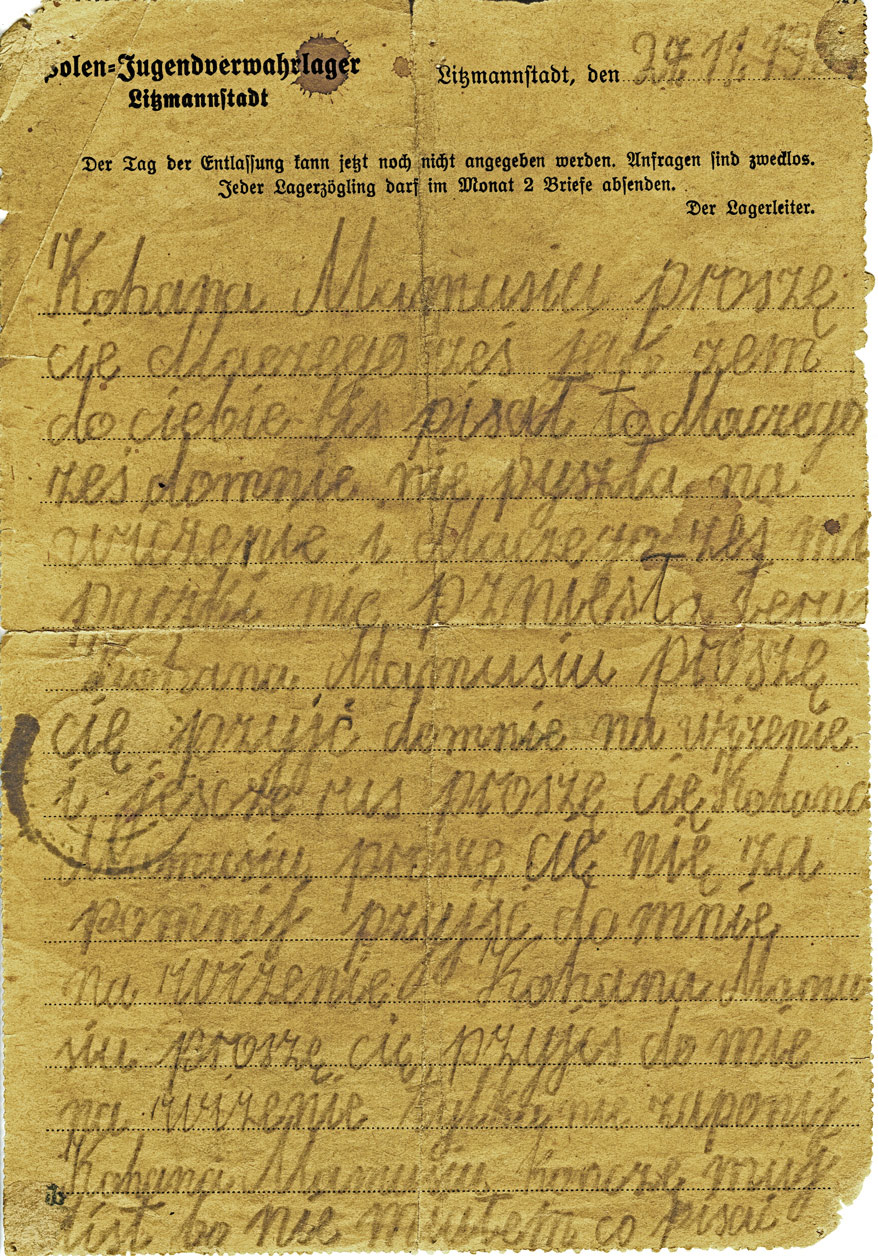 Polen-Jugendverwahrlager
Litzmannstadt
Litzmannstadt, den 27 11 43
Der Tag der Entlassung kann jetzt noch nicht angegeben werden. Anfragen sind zwecklos.
Jeder Lagerzögling darf im Monat 2 Briefe absenden.
Der Lagerleiter.
Kohana Mamusiu proszę
cię dlaczego żeś jak żem
do ciebie lis pisał to dlaczego
żeś domnie nie pyszła na
wizenie i dlaczego żeś mi
paczki nie pzniesła
Kohana Mamusiu proszę
cię pzyjć domnie na wizenie
i jescze rus proszę cię Kohana
Mamusiu proszę cię nię za
pomnij pzyjść do mnie
na wizenie Kohana Mamu
siu proszę cię pzyjćs do mie
na wizenie tylko nie zaponij
Kohana Mamusiu kończe muj
list bo nie miałem co pisać